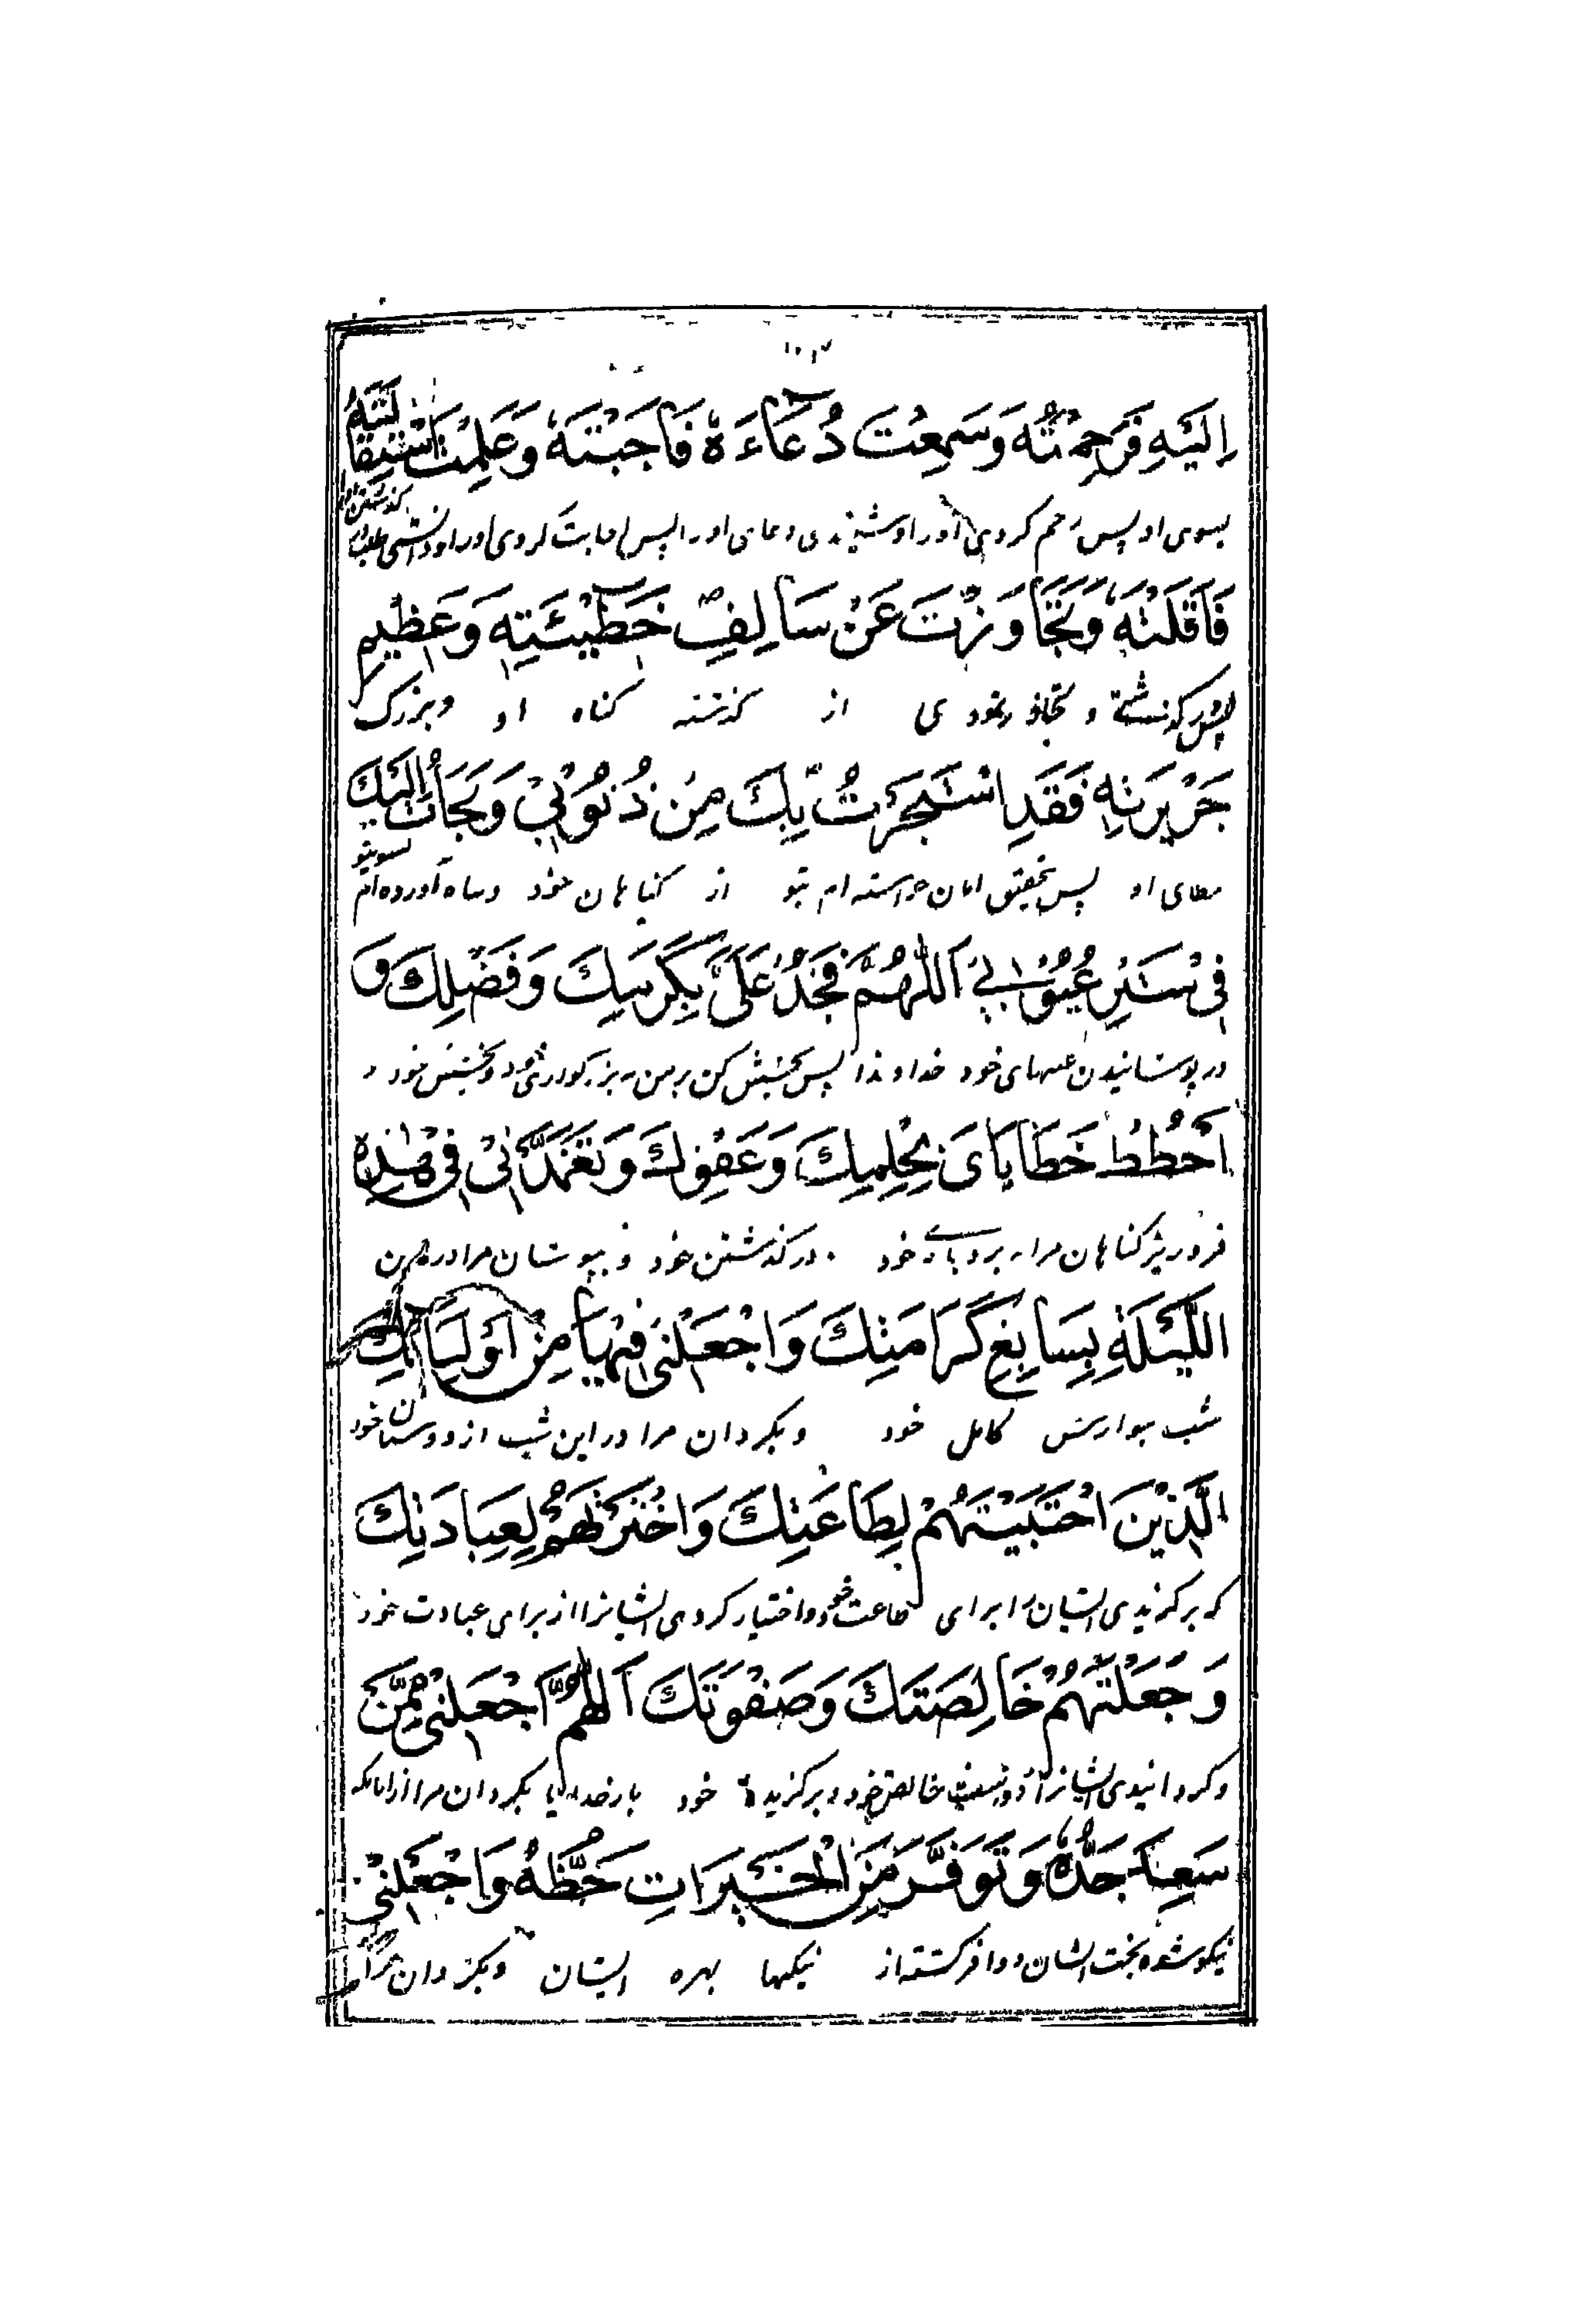 اِلَيْهِ فَرَحِمْتَهُ وَسَمِعْتَ دُعَاءَهُ فَاَجَبْتَهُ وَعَلِمْتَ اسْتِقَالَتَهُ
بسوی او پس رحم کردی او را و شنیدی دعای او را پس اجابت کردی او را و دانستی طلب گذشتن
فَاَقَلْتَهُ وَتَجَاوَزْتَ عَنْ سَالِفِ خَطِيْئَتِهِ وَعَظِيْمِ
پس گذشتی و تجاوز نمودی از گذشته گناه او و بزرگ
جَرِيْرَتِهِ فَقَدِ اسْتَجَرْتُ بِكَ مِنْ ذُنُوْبِيْ وَلَجَأْتُ اِلَيْكَ
خطای او پس بتحقیق امان خواسته ام بتو از گناهان خود و پناه آورده ام بسوی تو
فِيْ سَتْرِ عُيُوْبِيْ اَللّٰهُمَّ فَجُدْ عَلَيَّ بِكَرَمِكَ وَفَضْلِكَ وَ
در پوشانیدن عیبهای خود خداوندا پس بخشش کن بر من به بزرگواری خود و بخشش خود و
احْطُطْ خَطَايَايَ بِحِلْمِكَ وَعَفْوِكَ وَتَغَمَّدْنِيْ فِيْ هٰذِهِ
فرو ریز گناهان مرا به بردباری خود و درگذشتن خود و بپوشان مرا در این
اللَّيْلَةِ بِسَابِغِ كَرَامَتِكَ وَاجْعَلْنِيْ فِيْهَا مِنْ اَوْلِيَائِكَ
شب بنوازش کامل خود و بگردان مرا در این شب از دوستان خود
الَّذِيْنَ اجْتَبَيْتَهُمْ لِطَاعَتِكَ وَاخْتَرْتَهُمْ لِعِبَادَتِكَ
که برگزیدی ایشان را برای طاعت خود و اختیار کردی ایشانرا از برای عبادت خود
وَجَعَلْتَهُمْ خَالِصَتَكَ وَصَفْوَتَكَ اَللّٰهُمَّ اجْعَلْنِيْ مِمَّنْ
و گردانیدی ایشانرا خالص خود و برگزیده خود بار خدایا بگردان مرا از انانکه
سَعِدَ جَدُّهُ وَتَوَفَّرَ مِنَ الْخَيْرَاتِ حَظُّهُ وَاجْعَلْنِيْ
نیکو شده بخت ایشان و وافر گشته از نیکیها بهره ایشان و بگردان مرا